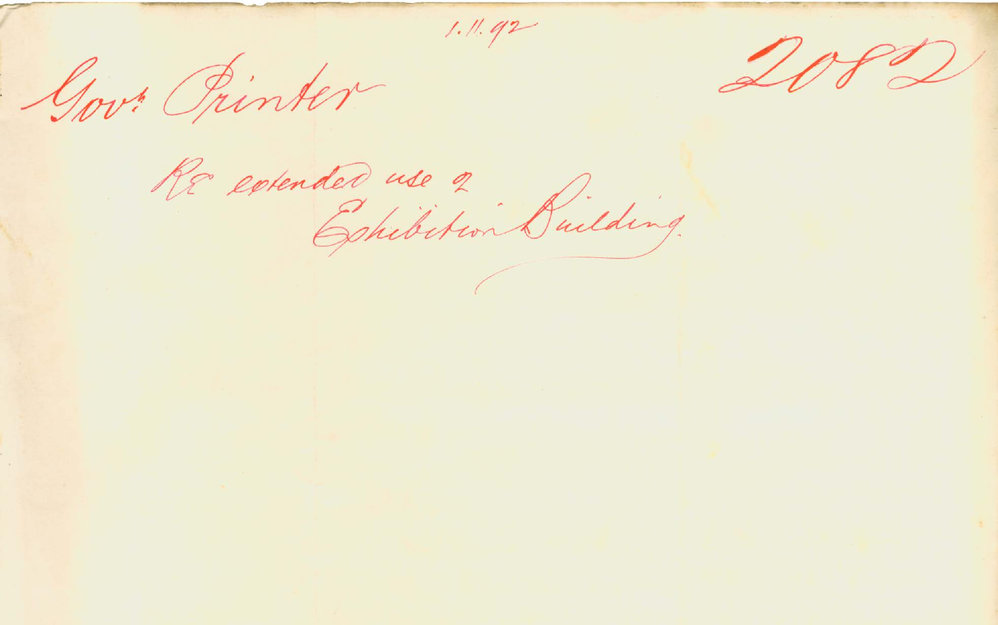 1.11.92
2082
Govt Printer
Re extended use of
Exhibition Building.